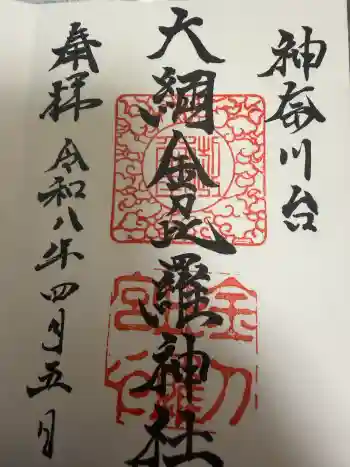 神奈川台
大綱金刀比羅神社
奉拝 令和八年四月五日